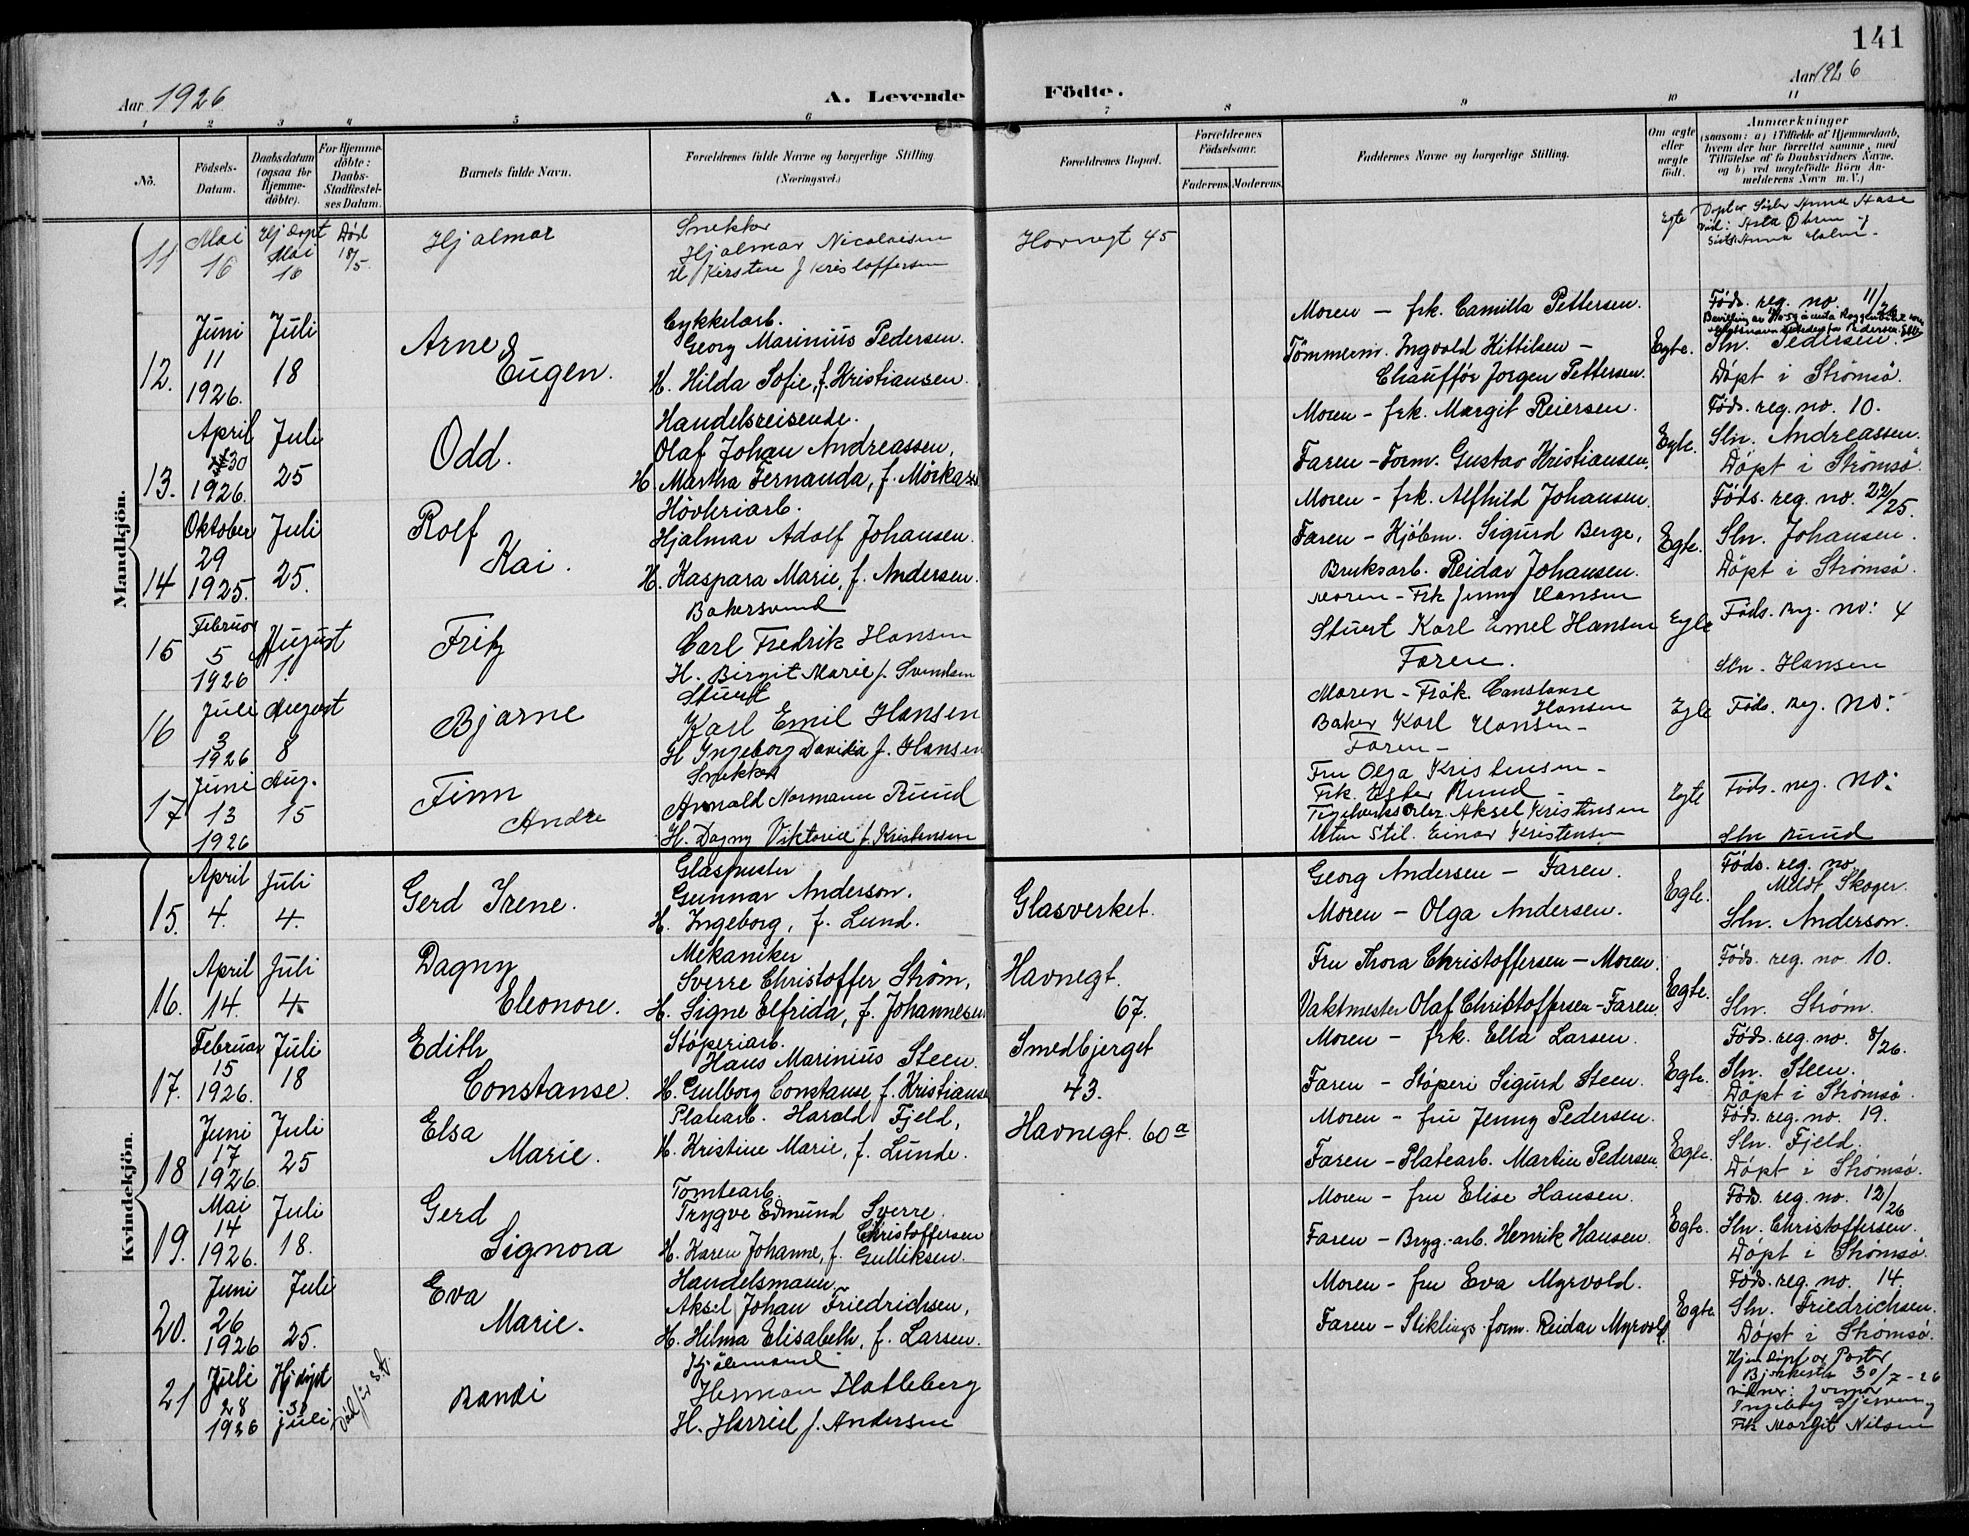 141
Aar 1926
A. Levende Födte.
Aar 1926
1 2 3 4 5 6 7 8 9 10 11
No.
Födsels-Datum.
Daabsdatum (ogsaa for Hjemme-döbte).
For Hjemme-döbte: Daabs-Stadfæstel-ses Datum.
Barnets fulde Navn.
Forældrenes fulde Navne og borgerlige Stilling.
(Næringsvei.)
Forældrenes Bopæl.
Forældrenes Födselsaar.
Faderens. Moderens.
Faddernes Navne og borgerlige Stilling.
Om ægte eller uægte födt.
Anmærkninger
(saasom: a) i Tilfælde af Hjemmedaab,
hvem der har forrettet samme, med
Tilföielse af to Daabsvidners Navne,
og b) ved uægtefödte Börn An-
melderens Navn m. V.)
Mandkjön.
11 Mai 16 Hj döpt Mai 16 Död 18/5. Hjalmar
Snekker
Hjalmar Nicolaisen
H. Kirsten f. Kristoffersen
Havnegt 45
Egte
Anna
12. Juni 11 1926. Juli 18 Arne Eugen.
Cykkelarb.
Georg Marinius Pedersen.
H. Hilda Sofie, f. Kristiansen.
Moren — frk. Camilla Pettersen.
Tömmerm. Ingvald Kittilsen —
Chauffør Jørgen Pettersen.
Egte.
Föds. reg. no. 11/26
Sln. Pedersen.
Döpt i Strömsö.
13. April 30 1926. Juli 25 Odd.
Handelsreisende.
Olaf Johan Andreassen,
H. Martha Fernanda, f. Mörkaas
Moren — frk. Margit Reiersen.
Faren — Form. Gustav Kristiansen.
Egte.
Föds. reg. no. 10.
Sln. Andreassen.
Döpt i Strömsö.
14 Oktober 29 1925. Juli 25. Rolf Kai.
Hövleriarb.
Hjalmar Adolf Johansen.
H. Kaspara Marie, f. Andersen.
Moren — frk. Alfhild Johansen.
Faren — Kjöbm. Sigurd Berge,
Bruksarb. Reidar Johansen.
Egte.
Föds. reg. no. 22/25.
Sln. Johansen.
Döpt i Strömsö.
15 Februar 5 1926 August 1. Fritz
Bakersvend
Carl Fredrik Hansen
H. Birgit Marie f. Svendsen
Moren — Frk Jenny Hansen
Stuert Karl Emel Hansen
Faren.
Egte
Föds. reg. no: 4
Sln. Hansen
16 Juli 3 1926 August 8 Bjarne
Stuert
Karl Emil Hansen
H Ingeborg Davida f. Hansen
Moren — Frök. Constanse Hansen
Baker Karl Hansen —
Faren —
Egte
Föds. reg. no:
17 Juni 13 1926 Aug. 15 Finn Andre
Snekker
Arnold Normann Ruud
H. Dagny Viktoria f. Kristensen
Fru Olga Kristensen —
Frk. Ester Ruud —
Aksel Kristensen
Uten Stil. Einar Kristensen
Egte
Föds. reg. no:
Sln Ruud
Kvindekjön.
15. April 4. Juli 4. Gerd Irene.
Glaspuster
Gunnar Anderson.
H. Ingeborg, f. Lund.
Glasverket.
Georg Andersen — Faren.
Moren — Olga Andersen.
Egte.
Föds. reg. no
Meldt Skoger.
Sln. Anderson.
16. April 14. Juli 4 Dagny Eleonore.
Mekaniker
Sverre Christoffer Ström,
H. Signe Elfrida, f. Johannesen
Havnegt. 67.
Fru Thora Christoffersen — Moren.
Vaktmester Olaf Christoffersen — Faren
Egte.
Föds. reg. no. 10.
Sln. Ström.
17. Februar 15 1926. Juli 18 Edith Constanse.
Stöperiarb.
Hans Marinius Steen.
H. Gulborg Constanse f. Kristiansen
Smedbjerget 43.
Moren — frk. Ella Larsen.
Faren — Stöperi Sigurd Steen.
Egte.
Föds. reg. no. 8/26.
Sln. Steen.
Döpt i Strömsö.
18 Juni 17 1926. Juli 25 Elsa Marie.
Platearb. Harald Fjeld,
H. Kristine Marie, f. Lunde.
Havnegt. 60 a
Moren — fru Jenny Pedersen.
Faren — Platearb. Martin Pedersen.
Egte.
Föds. reg. no. 19.
Sln. Fjeld.
Döpt i Strömsö.
19. Mai 14 1926. Juli 18. Gerd Signora
Tomtearb.
Trygve Edmund Sverre Christoffersen
H. Karen Johanne, f. Gulliksen.
Moren — fru Elise Hansen.
Faren — Bryg.-arb. Henrik Hansen.
Egte.
Föds. reg. no. 12/26
Sln. Christoffersen.
Döpt i Strömsö.
20. Juni 26 1926 Juli 25. Eva Marie.
Handelsmann.
Aksel Johan Friedrichsen,
H. Hilma Elisabeth, f. Larsen.
Moren — fru Eva Myrvold.
Faren — Stiklings-form. Reidar Myrvold.
Egte.
Föds. reg. no. 14.
Sln. Friedrichsen.
Döpt i Strömsö.
21 Juli 28 1926 Hj döpt 30 juli Randi
Herman Hatleberg
H. Harriel f. Andersen
Hjem döpt av Pastor
30/7 - 26
Frk Margit Nilsen